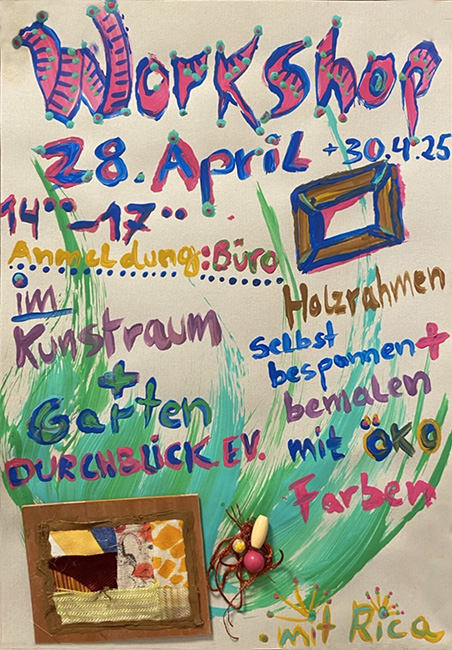 Workshop
28. April + 30.4.25
14°° - 17°°
Anmeldung: Büro
im
Kunstraum
+
Garten
DURCHBLICK.EV.
Holzrahmen
Selbst
bespannen +
bemalen
mit ÖKO
Farben
mit Rica